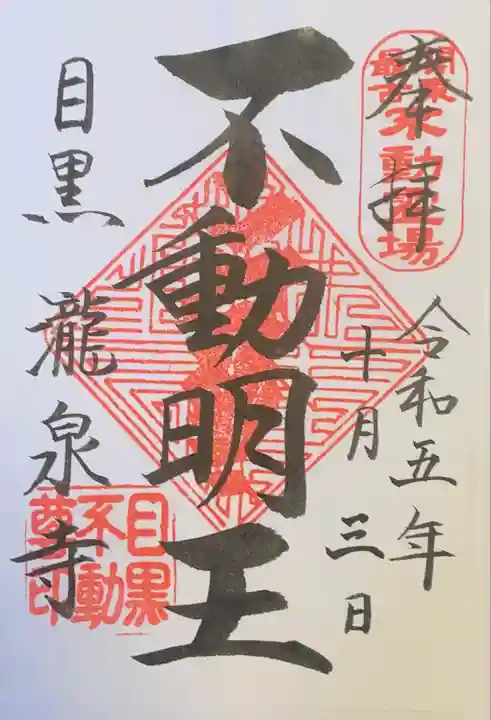 奉拝
関東最古不動霊場
令和五年
十月三日
不動明王
目黒瀧泉寺
目黒不動尊印